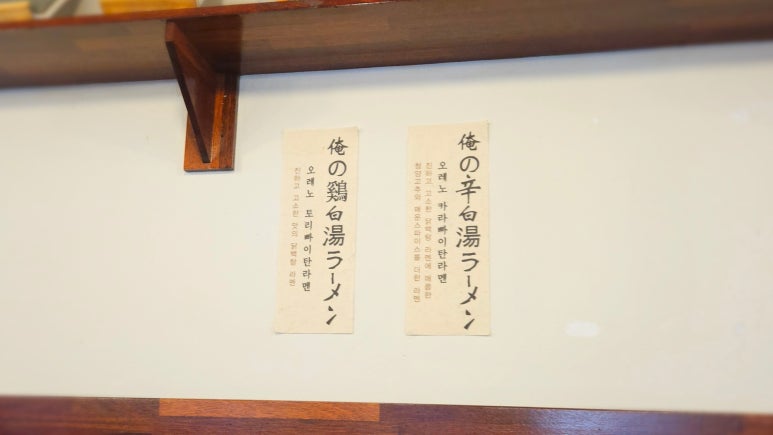 俺の辛白湯ラーメン
오레노 카라빠이탄라멘
진하고 고소한 닭백탕 라멘에 매콤한
청양고추와 매운스파이스를 더한 라멘
俺の鶏白湯ラーメン
오레노 토리빠이탄라멘
진하고 고소한 맛의 닭백탕 라멘